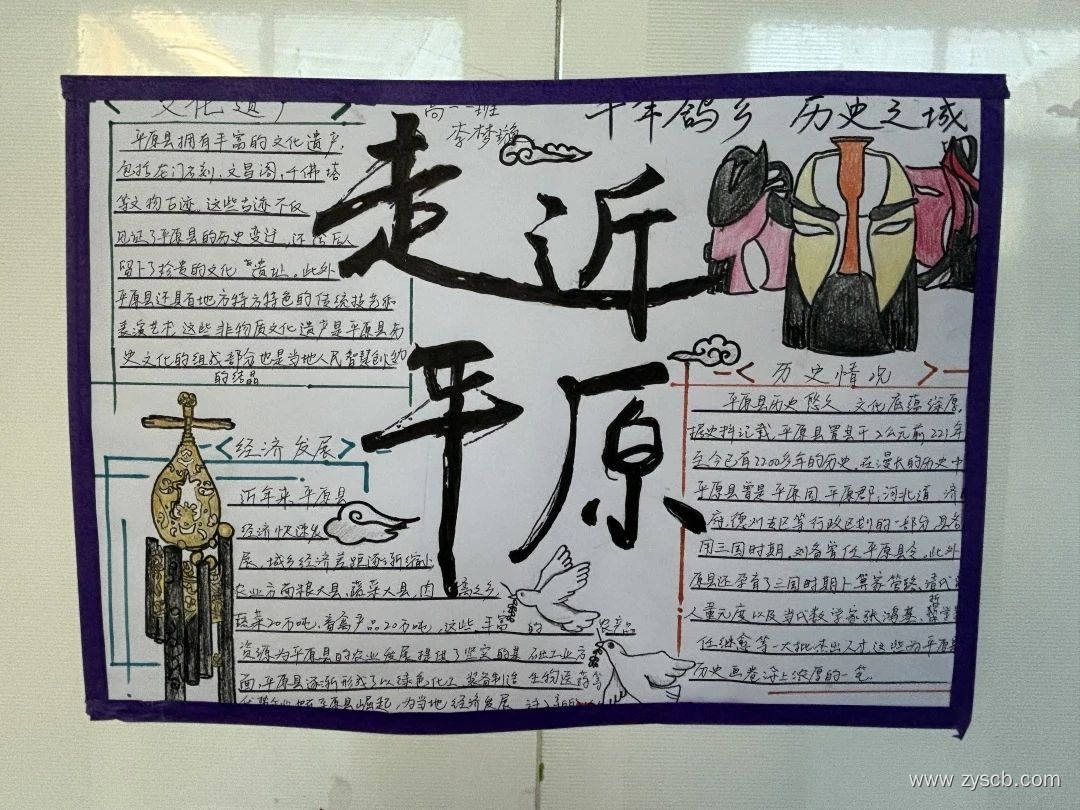 文化遗产
平原县拥有丰富的文化遗产,
包括龙门石刻、文昌阁,千佛塔
等文物古迹。这些古迹不仅
见证了平原县的历史变迁,还给后人
留下了珍贵的文化遗址。此外
平原县还具有地方特方特色的传统技艺和
表演艺术,这些非物质文化遗产是平原县历
史文化的组成部分也是当地人民智慧创
的结晶
高一一班
李梦璇
千年鸽乡 历史之城
走近
平原
经济发展
近年来,平原县
经济快速发
展,城乡经济差距逐渐缩小
农业方面粮大县,蔬菜大县,肉鸽之乡
蔬菜20万吨,畜禽产品20万吨,这些丰富的农产品
资源为平原县的农业发展提供了坚实的基础工业方
面,平原县逐渐形成了以绿色化工 装备制造 生物医药等
平原县崛起,为当地经济发展
历史情况
平原县历史悠久,文化底蕴深厚,
据史料记载,平原县置县于公元前221年
至今已有2200多年的历史,在漫长的历史中
平原县曾是平原国 平原郡,河北道 济
府,德州专区等行政区划的一部分,县名
国三国时期,刘备曾任平原县令。此外
原县还孕育了三国时期卜算家管辂,清代
人董元度以及当代数学家张鸿基,哲学
任继愈等一大批杰出人才这些为平原县
历史画卷添上浓厚的一笔。
www.zyscb.com